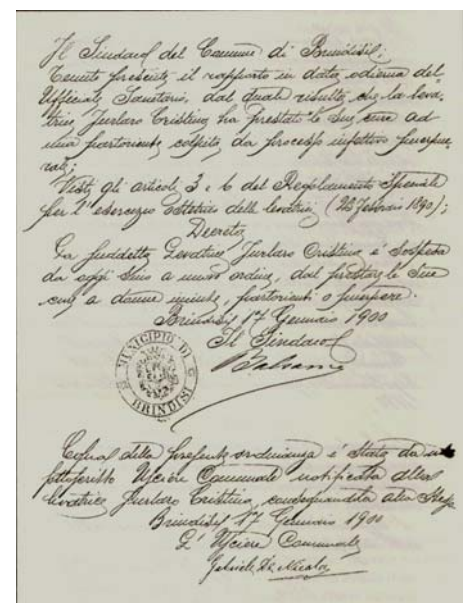 Il Sindaco del Comune di Brindisi;
Tenuto presente il rapporto in data odierna del
Ufficiale Sanitario, dal quale risulta che la leva-
trice Jurlaro Cristina ha prestato le sue cure ad
una partoriente colpita da processo infettivo puerpe-
rale;
Visti gli articoli 3 e 6 del Regolamento Speciale
per l'esercizio ostetrico delle levatrici (23 Febbraio 1890);
Decreta
La suddetta Levatrice Jurlaro Cristina è sospesa
da oggi sino a nuovo ordine, dal prestare le sue
cure a donne incinte, partorienti o puerpere.
Brindisi 17 Gennaio 1900
Il Sindaco
Balsamo
MUNICIPIO DI BRINDISI
Copia della presente ordinanza è stata da me
sottoscritto Usciere Comunale notificata alla
levatrice Jurlaro Cristina, consegnandola alla stessa
Brindisi 17 Gennaio 1900
L'Usciere Comunale
Gabriele De Nicolò